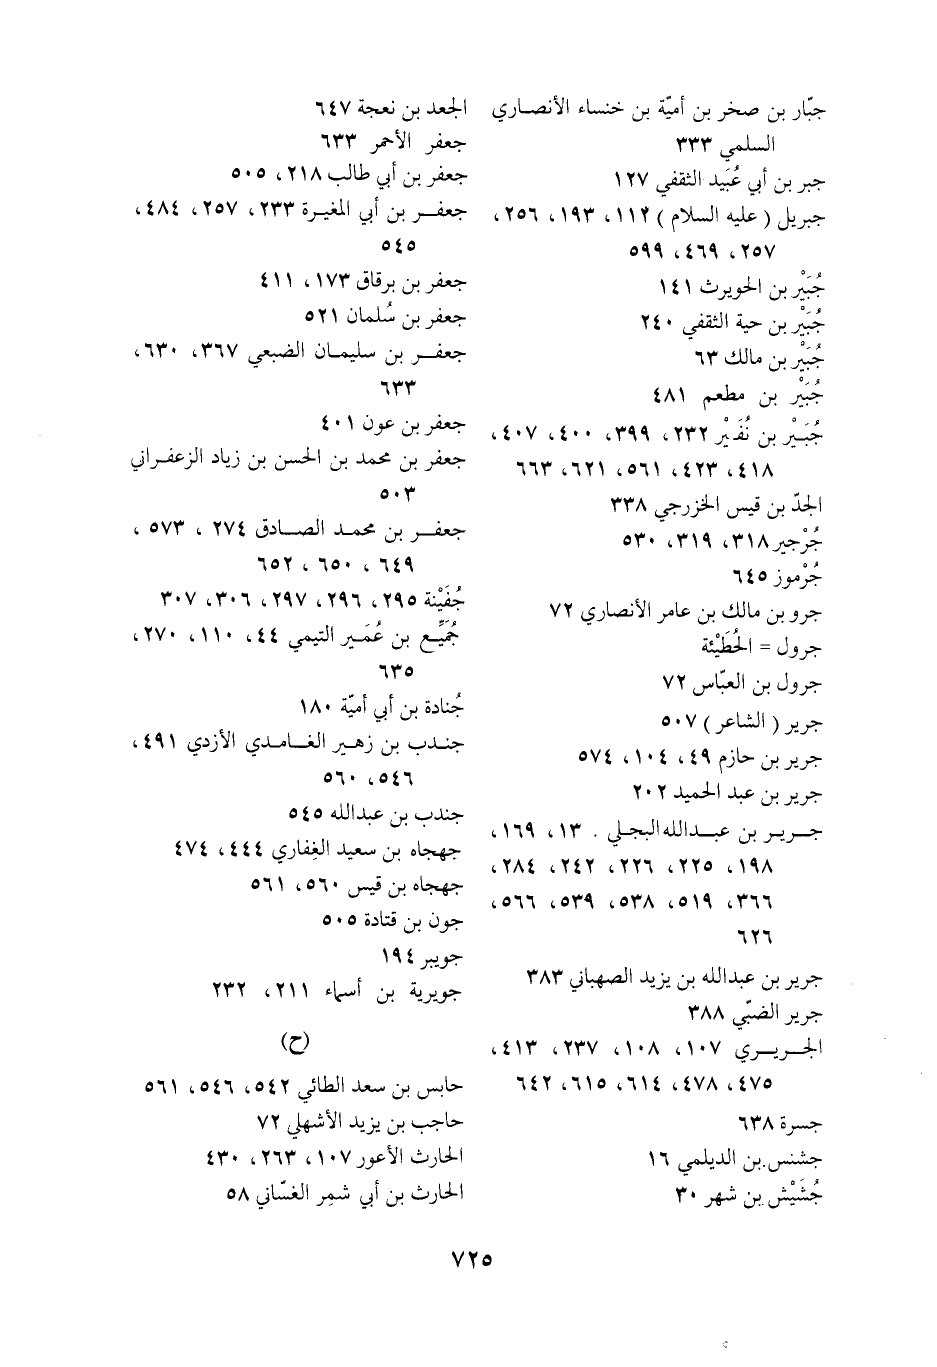 جبّار بن صخر بن أميّة بن خنساء الأنصاري
السلمي ٣٣٣
جبر بن أبي عُبَيد الثقفي ١٢٧
جبريل ( عليه السلام ) ١١٢، ١٩٣، ٢٥٦،
٢٥٧، ٤٦٩، ٥٩٩
جُبَيْر بن الحويرث ١٤١
جُبَيْر بن حية الثقفي ٢٤٠
جُبَيْر بن مالك ٦٣
جُبَيْر بن مطعم ٤٨١
جُبَيْر بن نُفَيْر ٢٣٢، ٣٩٩، ٤٠٠، ٤٠٧،
٤١٨، ٤٢٣، ٥٦١، ٦٢١، ٦٦٣
الجدّ بن قيس الخزرجي ٣٣٨
جُرْجير ٣١٨، ٣١٩، ٥٣٠
جُرْموز ٦٤٥
جرو بن مالك بن عامر الأنصاري ٧٢
جرول = الحُطَيْئة
جرول بن العبّاس ٧٢
جرير ( الشاعر ) ٥٠٧
جرير بن حازم ٤٩، ١٠٤، ٥٧٤
جرير بن عبد الحميد ٢٠٢
جرير بن عبدالله البجلي . ١٣، ١٦٩،
١٩٨، ٢٢٥، ٢٢٦، ٢٤٢، ٢٨٤،
٣٦٦، ٥١٩، ٥٣٨، ٥٣٩، ٥٦٦،
٦٢٦
جرير بن عبدالله بن يزيد الصهباني ٣٨٣
جرير الضبّي ٣٨٨
الجريري ١٠٧، ١٠٨، ٢٣٧، ٤١٣،
٤٧٥، ٤٧٨، ٦١٤، ٦١٥، ٦٤٢
جسرة ٦٣٨
جشنس بن الديلمي ١٦
جُشَيْش بن شهر ٣٠
الجعد بن نعجة ٦٤٧
جعفر الأحمر ٦٣٣
جعفر بن أبي طالب ٢١٨، ٥٠٥
جعفر بن أبي المغيرة ٢٣٣، ٢٥٧، ٤٨٤،
٥٤٥
جعفر بن برقاق ١٧٣، ٤١١
جعفر بن سُلمان ٥٢١
جعفر بن سليمان الضبعي ٣٦٧، ٦٣٠،
٦٣٣
جعفر بن عون ٤٠١
جعفر بن محمد بن الحسن بن زياد الزعفراني
٥٠٣
جعفر بن محمد الصادق ٢٧٤ ، ٥٧٣ ،
٦٤٩ ، ٦٥٠ ، ٦٥٢
جُفَيْنة ٢٩٥، ٢٩٦، ٢٩٧، ٣٠٦، ٣٠٧
جُمَيِّع بن عُمَير التيمي ٤٤، ١١٠، ٢٧٠،
٦٣٥
جُنادة بن أبي أميّة ١٨٠
جندب بن زهير الغامدي الأزدي ٤٩١،
٥٤٦، ٥٦٠
جندب بن عبدالله ٥٤٥
جهجاه بن سعيد الغِفاري ٤٤٤، ٤٧٤
جهجاه بن قيس ٥٦٠، ٥٦١
جون بن قتادة ٥٠٥
جويبر ١٩٤
جويرية بن أسماء ٢١١، ٢٣٢
(ح)
حابس بن سعد الطائي ٥٤٢، ٥٤٦، ٥٦١
حاجب بن يزيد الأشهلي ٧٢
الحارث الأعور ١٠٧، ٢٦٣، ٤٣٠
الحارث بن أبي شمِر الغسّاني ٥٨
٧٢٥